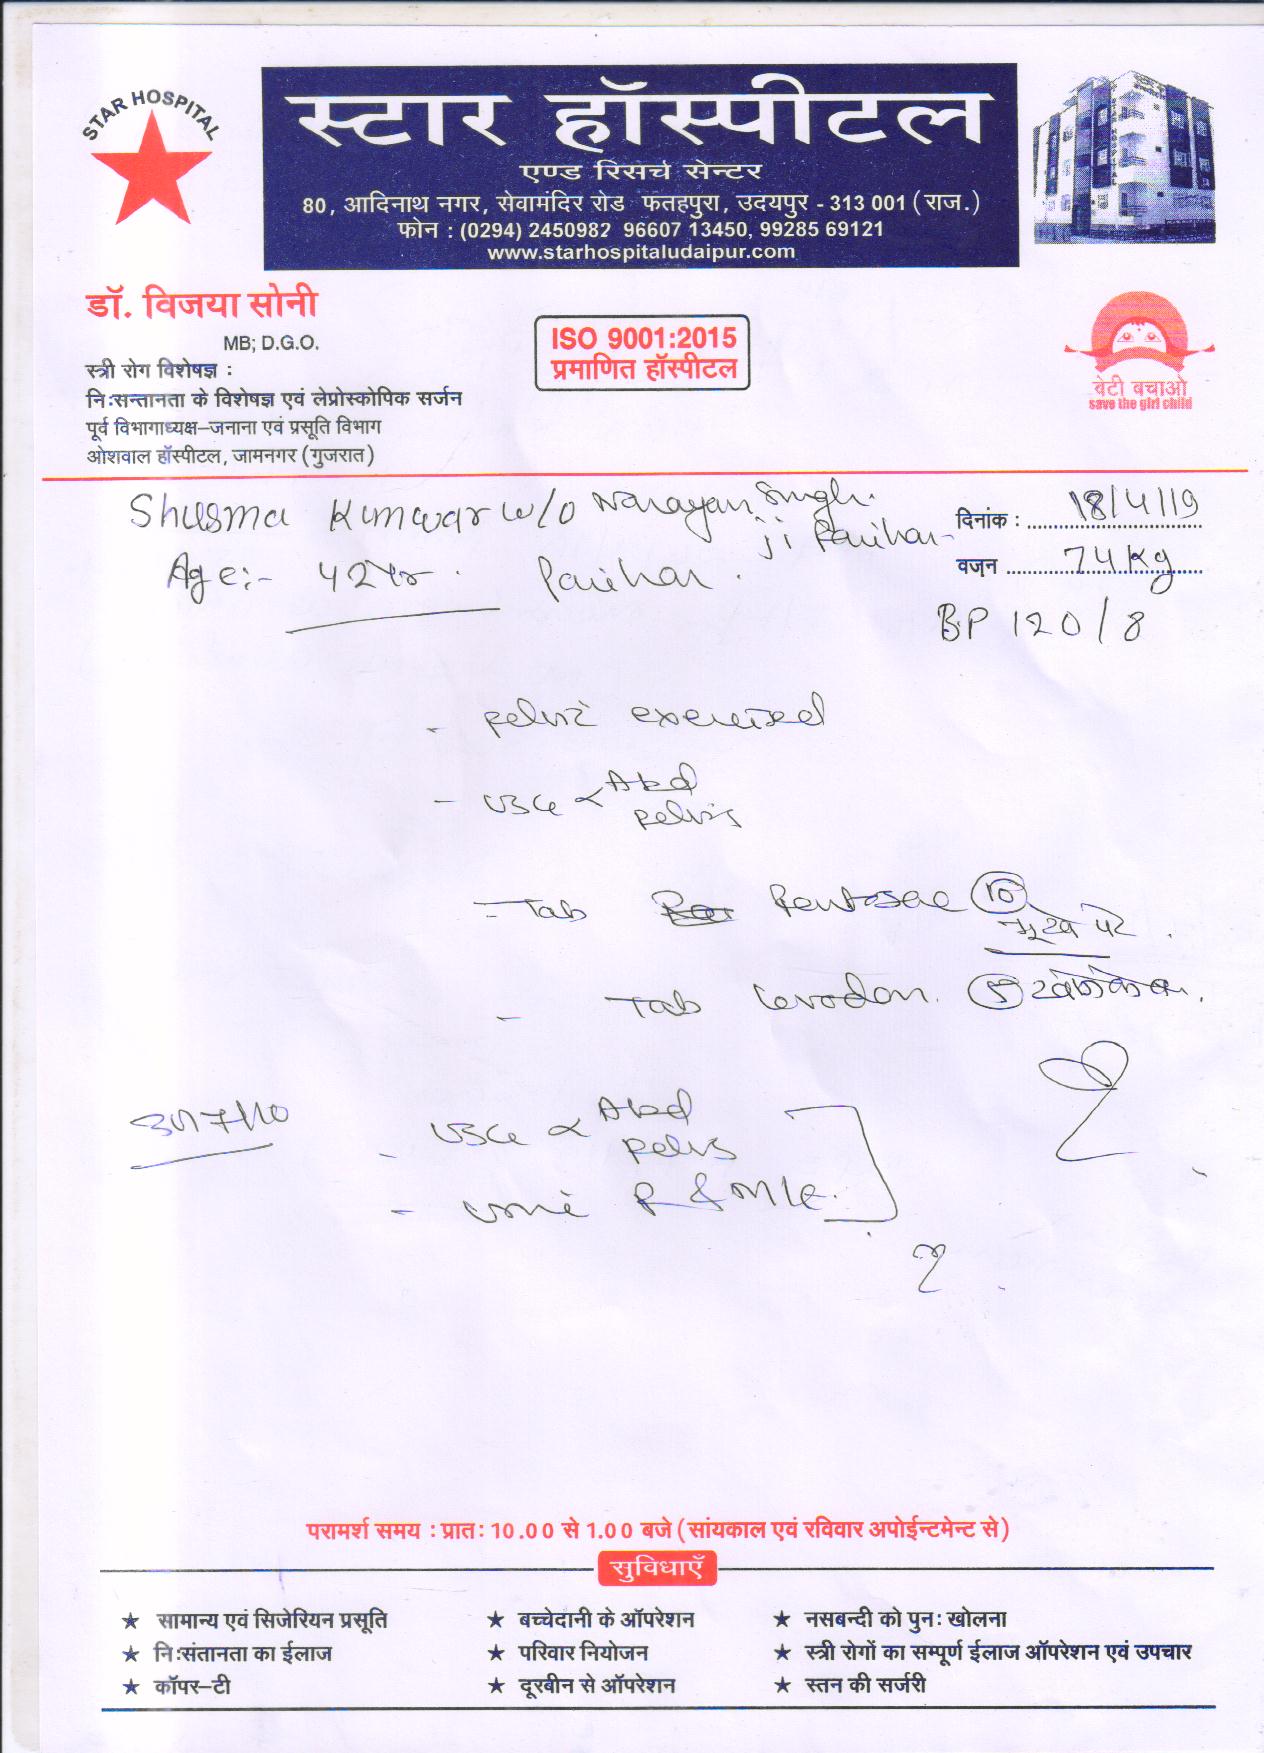 STAR HOSPITAL
स्टार हॉस्पीटल
एण्ड रिसर्च सेन्टर
80, आदिनाथ नगर, सेवामंदिर रोड फतहपुरा, उदयपुर - 313 001 (राज.)
फोन : (0294) 2450982 96607 13450, 99285 69121
www.starhospitaludaipur.com
डॉ. विजया सोनी
MB; D.G.O.
स्त्री रोग विशेषज्ञ :
निःसन्तानता के विशेषज्ञ एवं लेप्रोस्कोपिक सर्जन
पूर्व विभागाध्यक्ष–जनाना एवं प्रसूति विभाग
ओशवाल हॉस्पीटल, जामनगर (गुजरात)
ISO 9001:2015
प्रमाणित हॉस्पीटल
बेटी बचाओ
save the girl child
Shusma Kumwar w/o Narayan Singh
ji Parihar
दिनांक : 18/4/19
Age:- 42 Yr. Parihar.
वज़न 74 Kg
BP 120/8
- pelvic exercised
- USG Abd
pelvis
- Tab
भूखे पेट
- Tab
- USG Abd
pelvis
- Urine R & M/E.
परामर्श समय : प्रातः 10.00 से 1.00 बजे (सांयकाल एवं रविवार अपोईन्टमेन्ट से)
सुविधाएँ
★ सामान्य एवं सिजेरियन प्रसूति ★ बच्चेदानी के ऑपरेशन ★ नसबन्दी को पुनः खोलना
★ निःसंतानता का ईलाज ★ परिवार नियोजन ★ स्त्री रोगों का सम्पूर्ण ईलाज ऑपरेशन एवं उपचार
★ कॉपर–टी ★ दूरबीन से ऑपरेशन ★ स्तन की सर्जरी